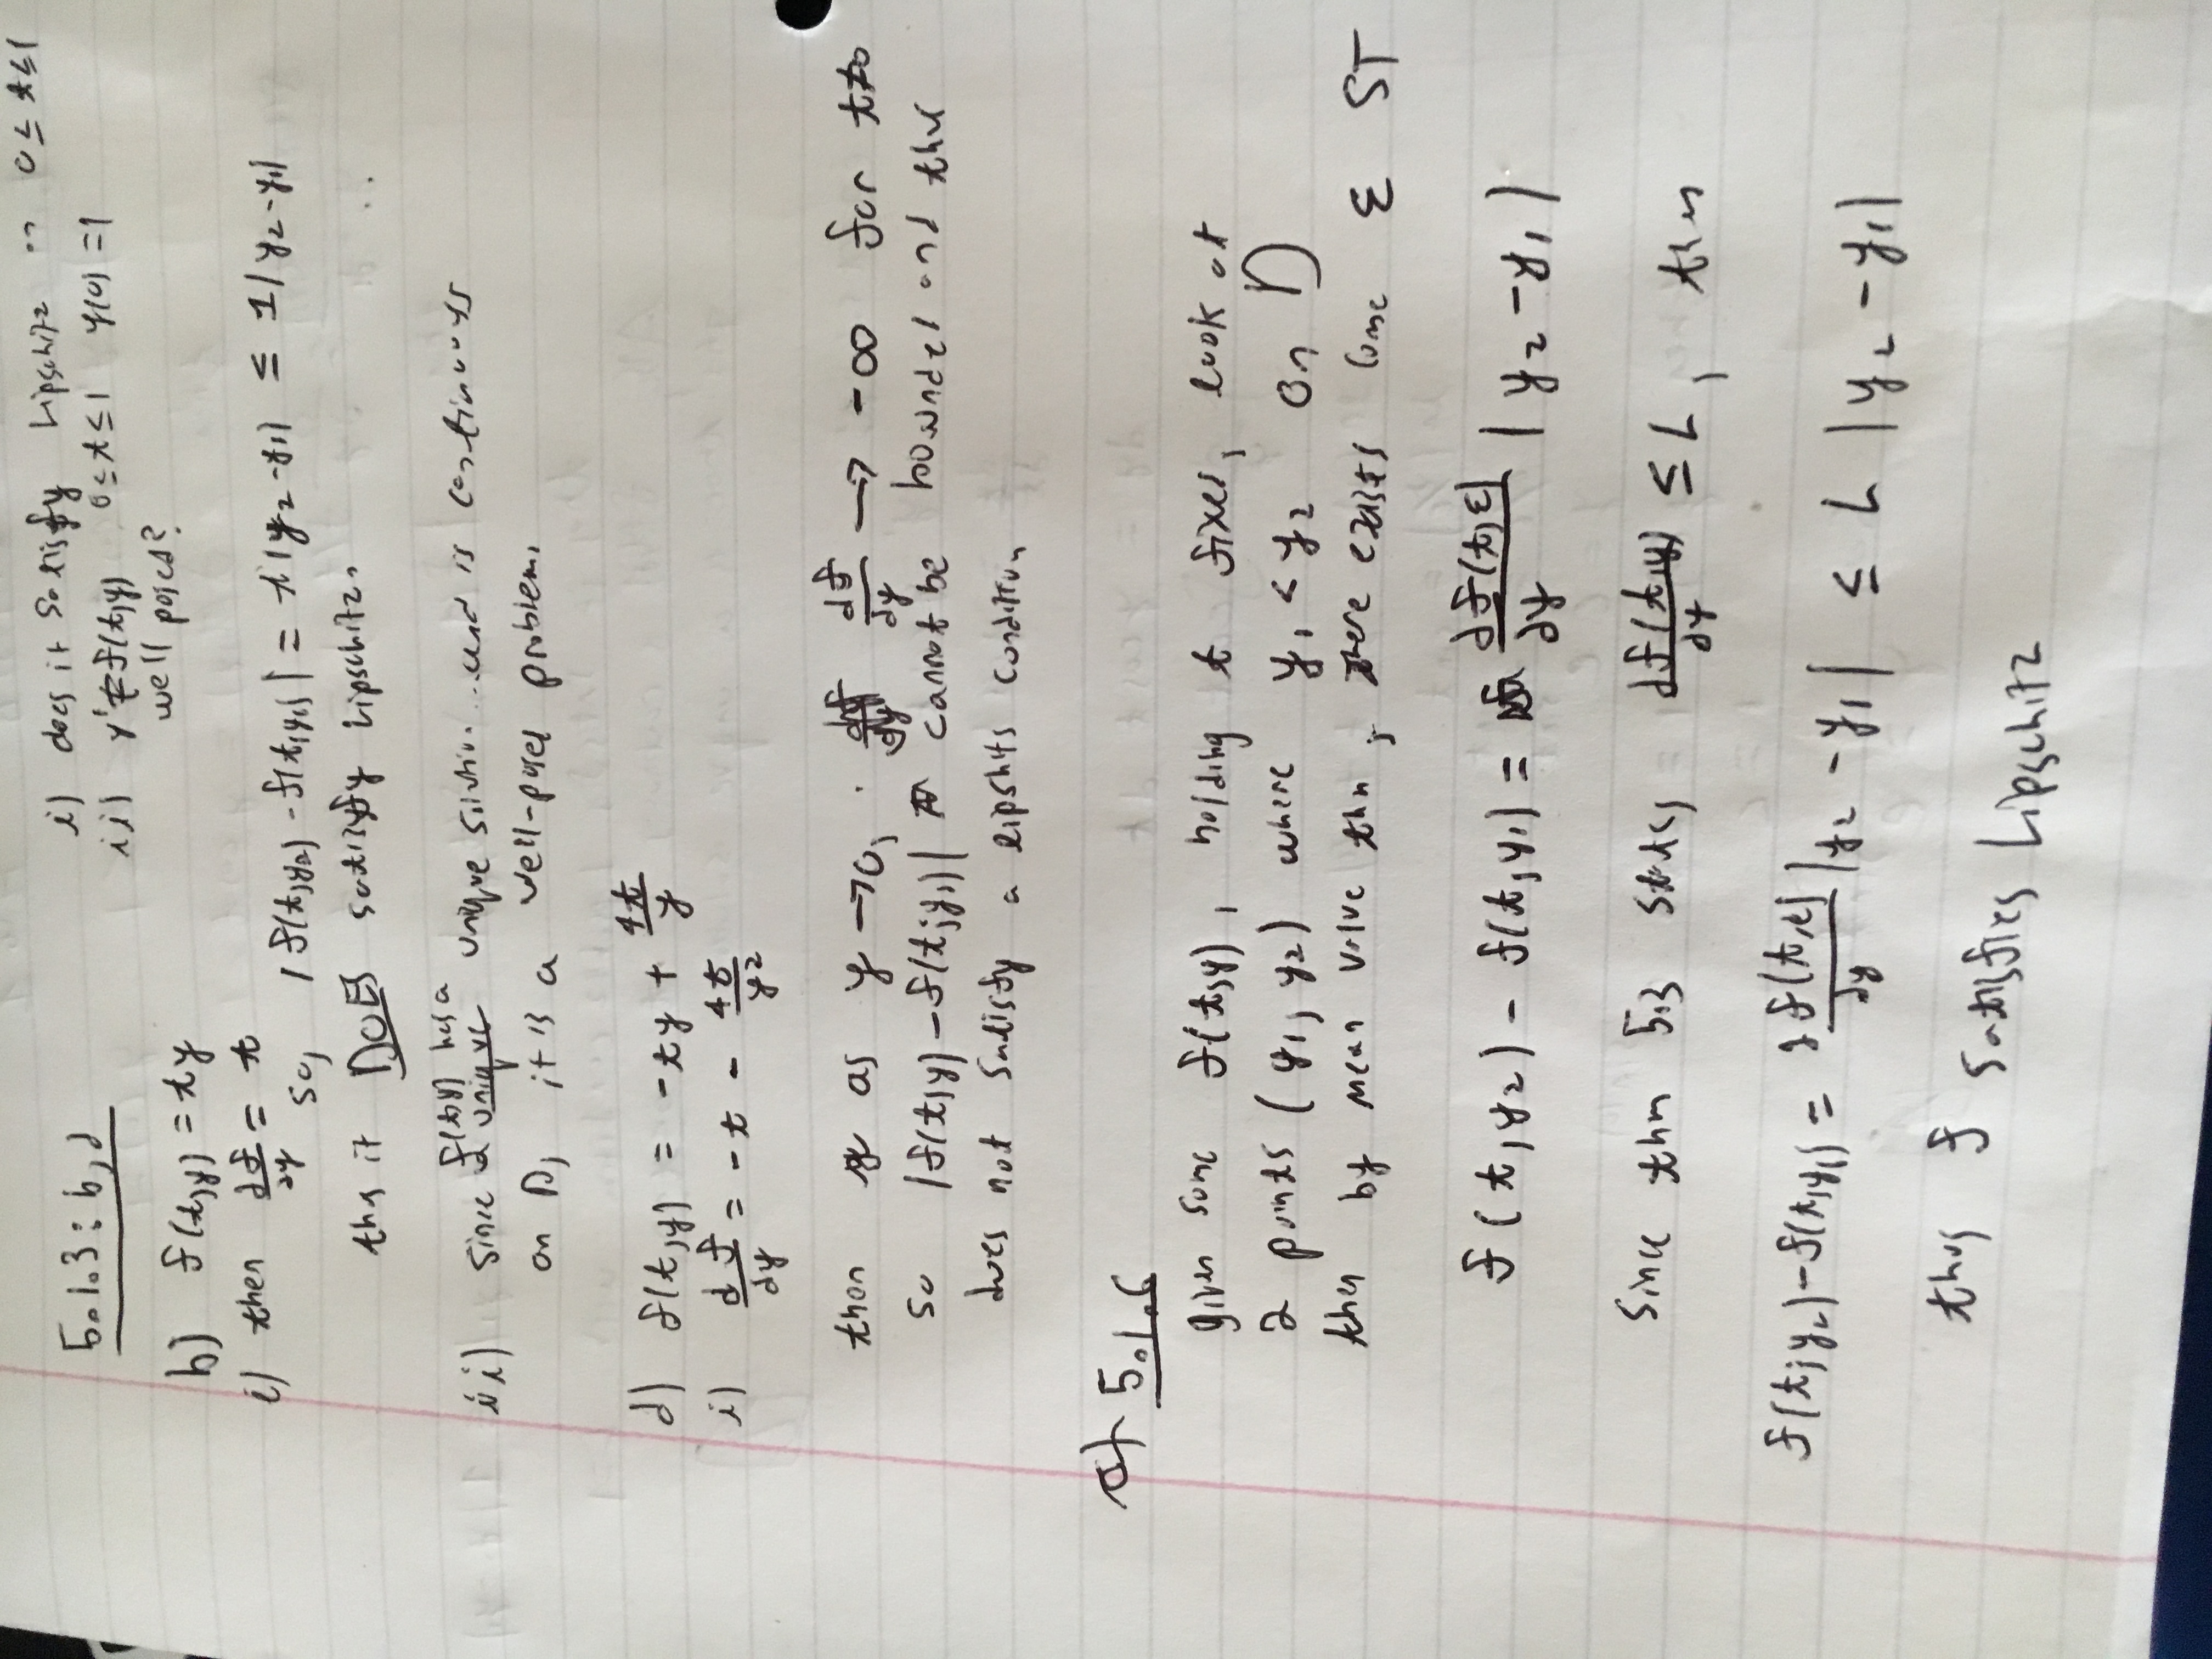 5.1.3: b, d
i) does it satisfy Lipschitz on 0 ≤ t ≤ 1
ii) y' = f(t,y) 0 ≤ t ≤ 1 y(0) = 1
well posed?
b) f(t,y) = ty
i) then df/dy = t
so, |f(t,y2) - f(t,y1)| = t|y2 - y1| ≤ 1|y2 - y1|
thus it DOES satisfy Lipschitz.
f(t,y) has a
ii) since a unique unique solution and is continuous
on D, it is a well-posed problem.
d) f(t,y) = -ty + 4t/y
i) df/dy = -t - 4t/y2
then as y → 0, df/dy → -∞ for t≠0
so |f(t,y) - f(t,y1)| cannot be bounded and thus
does not satisfy a lipshits condition
a) 5.1.6
given some f(t,y), holding t fixed, look at
2 points (y1, y2) where y1 < y2 on D
then by mean value thm, there exists some ε ST
f(t,y2) - f(t,y1) = df(t,ε)/dy |y2 - y1|
Since thm 5.3 states df(t,y)/dy ≤ L, then
f(t,y2) - f(t,y1) = df(t,ε)/dy |y2 - y1| ≤ L |y2 - y1|
thus f satisfies Lipschitz